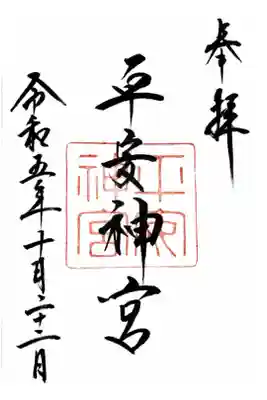 奉拝
平安神宮
平安神宮
令和五年十月二十二日